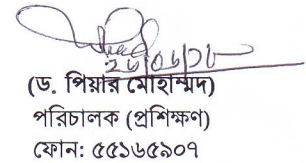 ২৮/০৬/২০
(ড. পিয়ার মোহাম্মদ)
পরিচালক (প্রশিক্ষণ)
ফোন: ৫৫১৬৫৯০৭